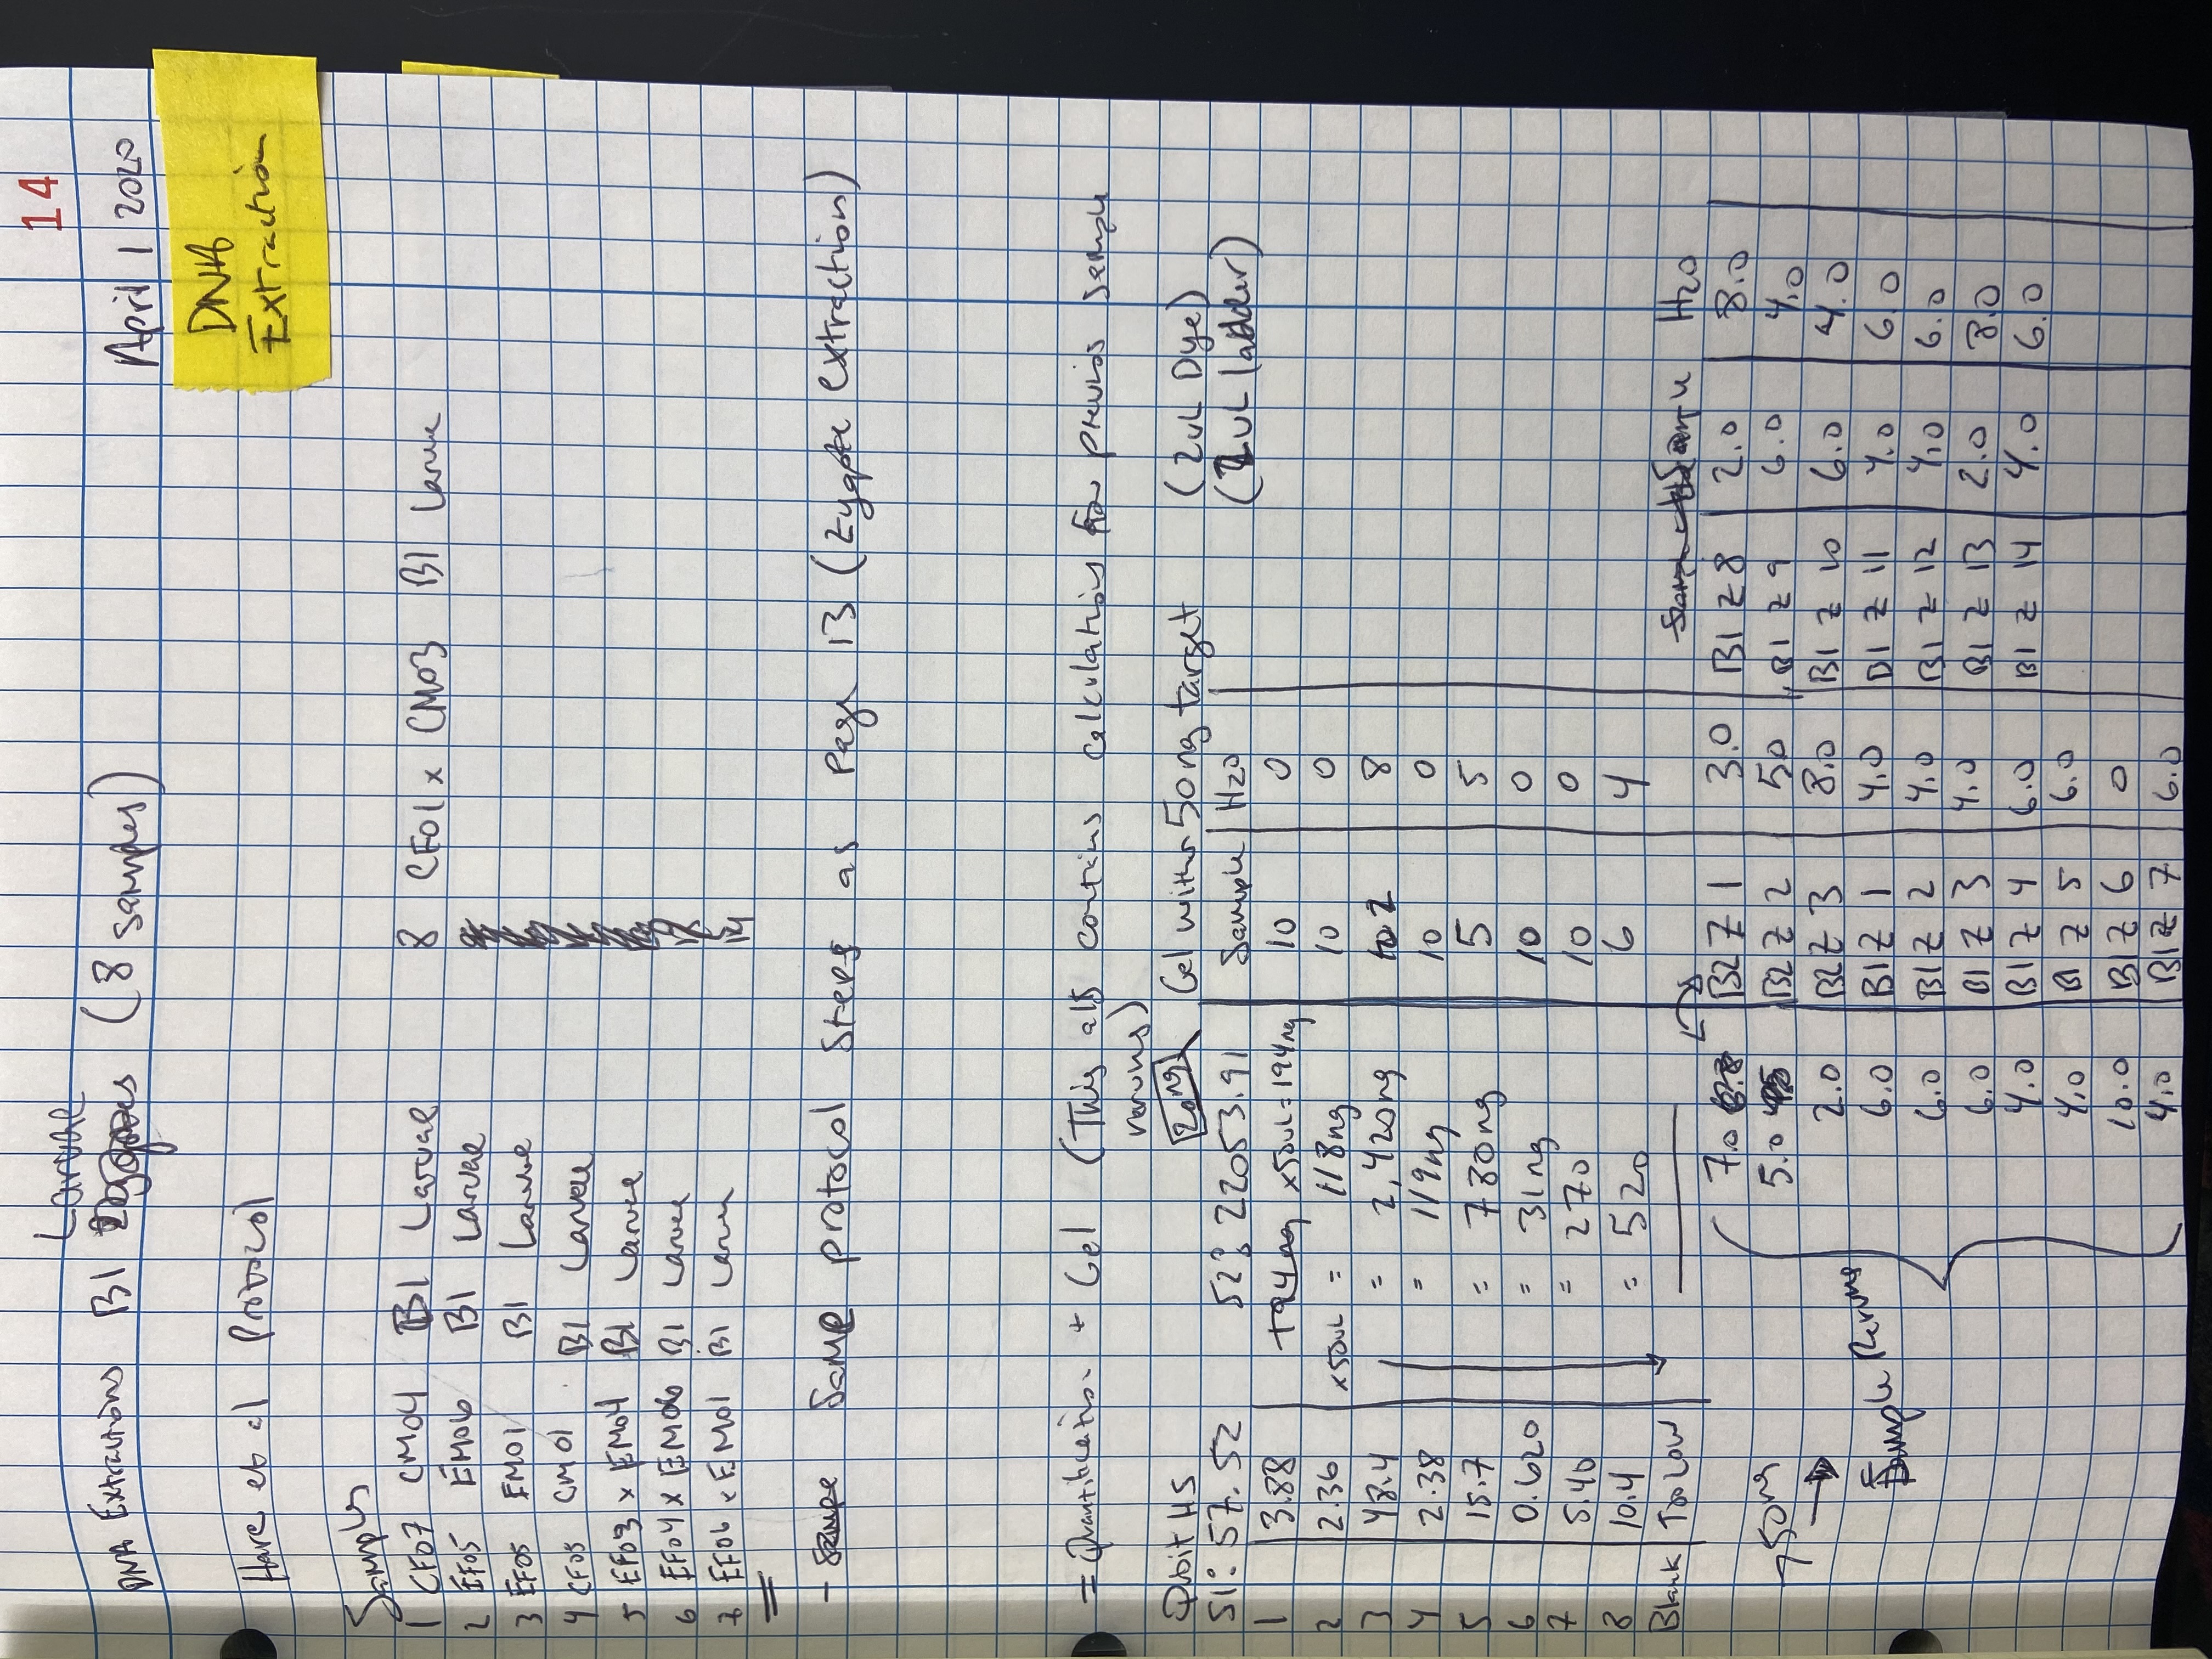 14
Larvae
DNA Extractions B1 (8 samples) April 1 2020
DNA
Extraction
Hare et al Protocol
Samples
1 CF07 CM04 B1 Larvae 8 CF01 x CM03 B1 Larvae
2 EF05 EM06 B1 Larvae
3 EF05 EM01 B1 Larvae
4 CF05 CM01 B1 Larvae
5 EF03 x EM04 B1 Larvae
6 EF04 x EM06 B1 Larvae
7 EF06 x EM01 B1 Larvae
14
- Same protocol steps as Page 13 (Zygote extraction)
= Quantification + Gel (This also contains calculations for previous sample
reruns)
Qubit HS 20ng Gel with 50ng target (2uL Dye)
S1: 57.52 S2: 22053.91 Sample H2O (2uL ladder)
1 3.88 x50uL = 194ng 10 0
2 2.36 x50uL = 118ng 10 0
3 48.4 = 2,420ng 2 8
4 2.38 = 119ng 10 0
5 15.7 = 780ng 5 5
6 0.620 = 31ng 10 0
7 5.40 = 270 10 0
8 10.4 = 520 6 4
Blank Too Low
Sample H2O
7.0 B2 Z 1 3.0 B1 Z 8 2.0 8.0
50ng 5.0 B2 Z 2 50 B1 Z 9 6.0 4.0
2.0 B2 Z 3 8.0 B1 Z 10 6.0 4.0
Sample Reruns 6.0 B1 Z 1 4.0 B1 Z 11 4.0 6.0
6.0 B1 Z 2 4.0 B1 Z 12 4.0 6.0
6.0 B1 Z 3 4.0 B1 Z 13 2.0 8.0
4.0 B1 Z 4 6.0 B1 Z 14 4.0 6.0
4.0 B1 Z 5 6.0
10.0 B1 Z 6 0
4.0 B1 Z 7 6.0